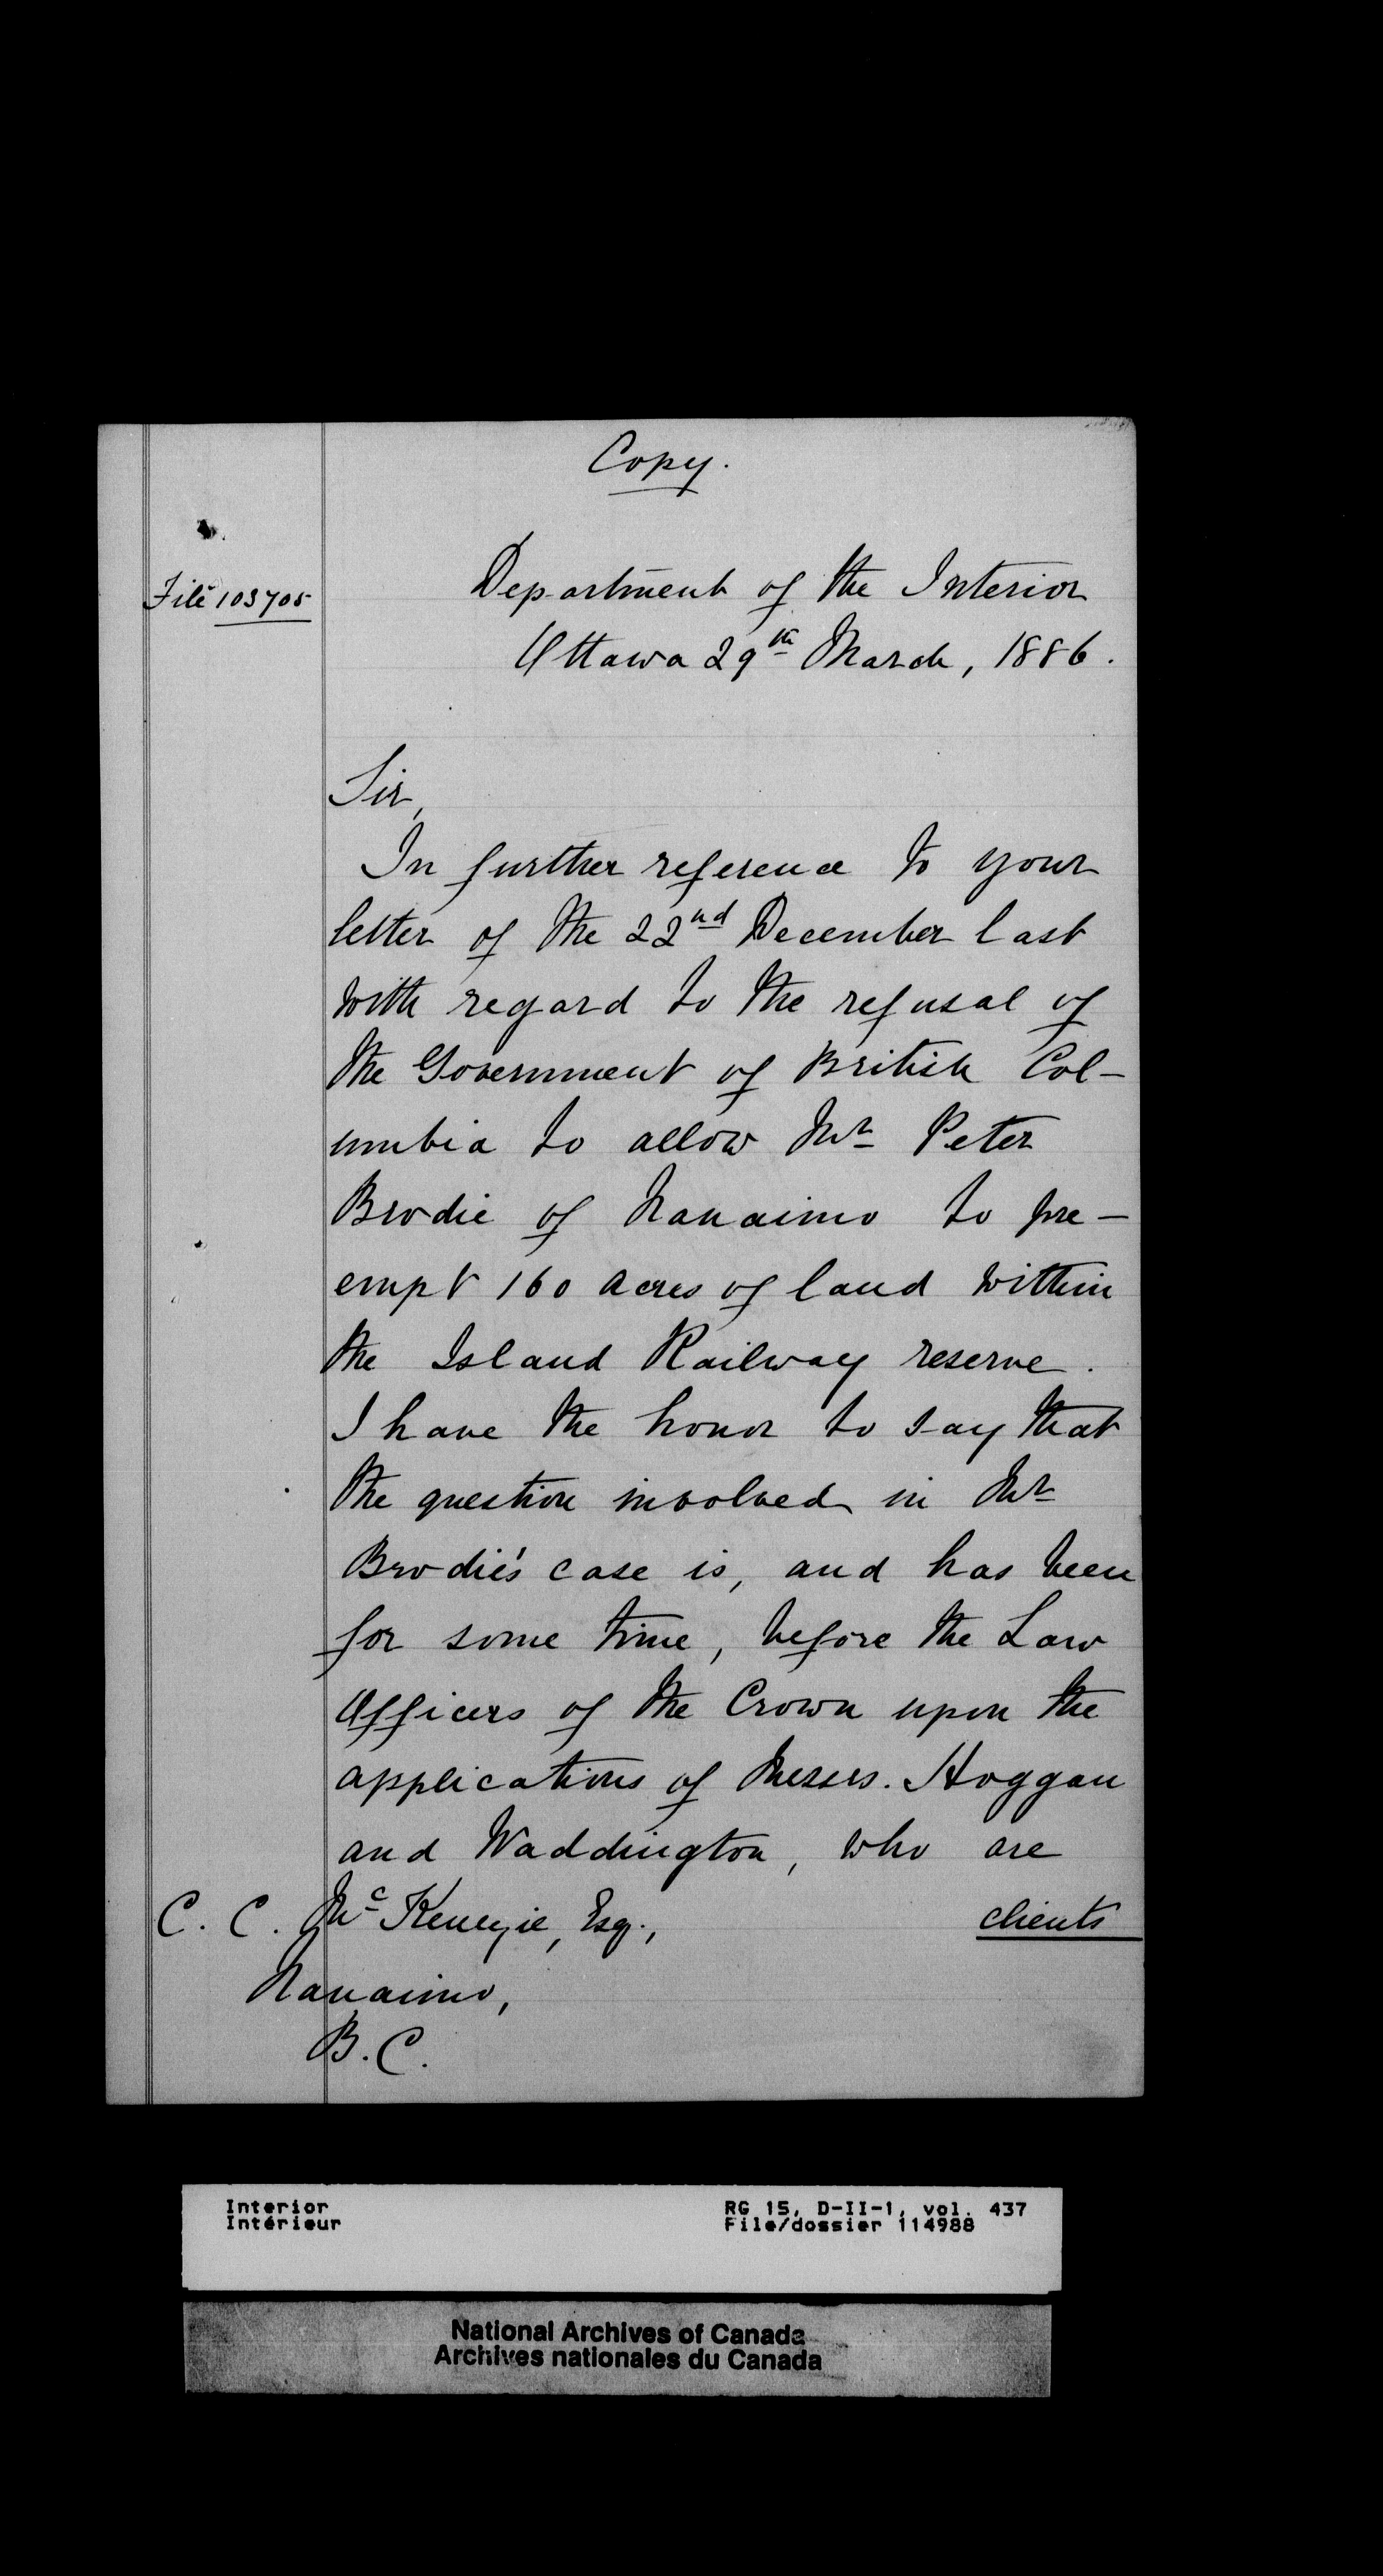 Copy.
File 103705
Department of the Interior
Ottawa 29th March, 1886.
Sir,
In further reference to your
letter of the 22nd December last
with regard to the refusal of
the Government of British Col-
umbia to allow Mr Peter
Brodie of Nanaimo to pre-
empt 160 acres of land within
the Island Railway reserve.
I have the honor to say that
the question involved in Mr
Brodie's case is, and has been
for some time, before the Law
Officers of the Crown upon the
applications of Messrs. Hoggan
and Waddington, who are
clients
C. C. McKenzie, Esq.,
Nanaimo,
B.C.
Interior
Intérieur
RG 15, D-II-1, vol. 437
File/dossier 114988
National Archives of Canada
Archives nationales du Canada